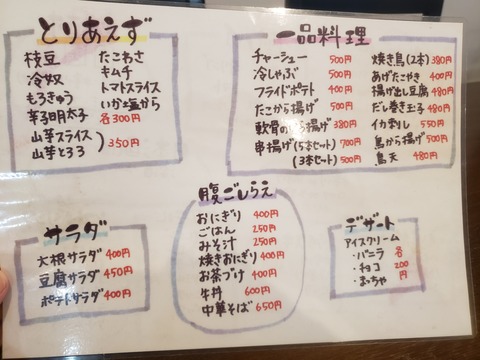 とりあえず
枝豆 たこわさ
冷奴 キムチ
もろきゅう トマトスライス
芋子明太子 いか塩から
各300円
山芋スライス
山芋とろろ
350円
一品料理
チャーシュー 500円
冷しゃぶ 500円
フライドポテト 400円
たこから揚げ 500円
軟骨のから揚げ 380円
串揚げ(5本セット) 700円
(3本セット) 500円
焼き鳥(2本) 380円
あげたこやき 400円
揚げ出し豆腐 480円
だし巻き玉子 480円
イカ刺し 550円
鳥から揚げ 500円
鳥天 480円
サラダ
大根サラダ 400円
豆腐サラダ 450円
ポテトサラダ 400円
腹ごしらえ
おにぎり 400円
ごはん 250円
みそ汁 250円
焼きおにぎり 400円
お茶づけ 400円
牛丼 600円
中華そば 650円
デザート
アイスクリーム
・バニラ 各
・チョコ 200
・まっちゃ 円